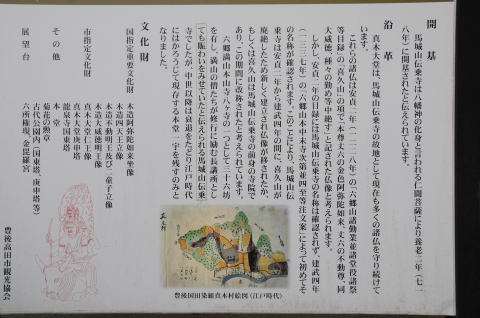 開基
馬城山伝乗寺は八幡神の化身と言われる仁聞菩薩により養老二年（七一
八年）に開基されたと伝えられています。
沿革
真木大堂は、馬城山伝乗寺の故地として現在も多くの諸仏を守り続けて
います。
これらの諸仏は安貞二年（一二二八年）の「六郷山諸勤業並諸堂役諸祭
等目録」の「喜久山」の項で「本尊丈六の金色阿弥陀如来、丈六の不動尊、同
大威徳、種々の勤め等中絶す」と記された仏像と考えられます。
しかし、安貞二年の目録には馬城山伝乗寺の名称は確認されず、建武四年
（一三三七年）の「六郷山本中末寺次第並四至等注文案」によって初めてそ
の名称が確認されます。このことにより、馬城山伝
乗寺は安貞二年から建武四年の間に、喜久山が
廃絶したため新しく建立され仏像が移されたか、
もしくは喜久山は馬城山伝乗寺の前身の寺院で
あり、この期間に改称されたと考えられています。
六郷満山本山本寺八ヶ寺の一つとして三十六坊
を有し、満山の僧たちが修行に励む長講所とし
ても賑わいをみせていたと伝えられる馬城山伝乗
寺でしたが、中世以降は衰退をたどり江戸時代
にはかろうじて現存する本堂一宇を残すのみと
なりました。
文化財
国指定重要文化財　木造阿弥陀如来坐像
木造四天王立像
木造不動明王及び二童子立像
木造大威徳明王像
市指定文化財　真木大堂仁王像
真木大堂庚申塔
龍泉寺国東塔
その他　旧本堂
菊花の勲章
古代公園内（国東塔、庚申塔等）
展望台　六所権現、金毘羅宮
豊後国田染組真木村絵図（江戸時代）
豊後高田市観光協会